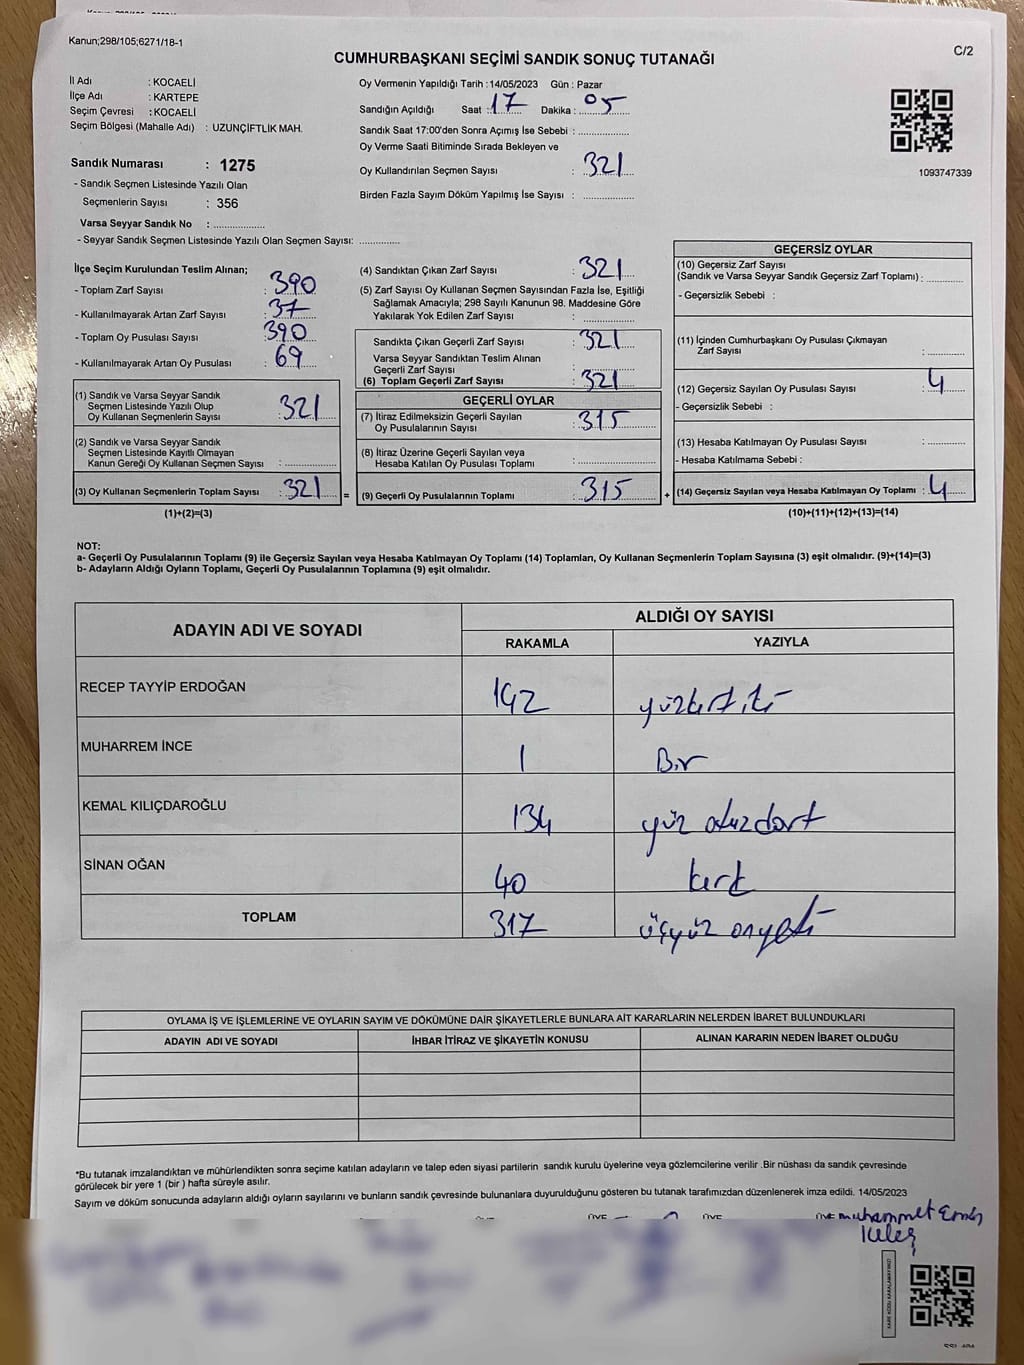 Kanun;298/105;6271/18-1
C/2
CUMHURBAŞKANI SEÇİMİ SANDIK SONUÇ TUTANAĞI
İl Adı : KOCAELİ
İlçe Adı : KARTEPE
Seçim Çevresi : KOCAELİ
Seçim Bölgesi (Mahalle Adı) : UZUNÇİFTLİK MAH.
Sandık Numarası : 1275
- Sandık Seçmen Listesinde Yazılı Olan
Seçmenlerin Sayısı : 356
Varsa Seyyar Sandık No : ..................
- Seyyar Sandık Seçmen Listesinde Yazılı Olan Seçmen Sayısı: ..............
Oy Vermenin Yapıldığı Tarih : 14/05/2023 Gün : Pazar
Sandığın Açıldığı Saat : 17 Dakika : 05
Sandık Saat 17:00'den Sonra Açımış İse Sebebi : ..................
Oy Verme Saati Bitiminde Sırada Bekleyen ve
Oy Kullandırılan Seçmen Sayısı : 321
Birden Fazla Sayım Döküm Yapılmış İse Sayısı : ..................
1093747339
İlçe Seçim Kurulundan Teslim Alınan;
- Toplam Zarf Sayısı : 390
- Kullanılmayarak Artan Zarf Sayısı : 37
- Toplam Oy Pusulası Sayısı : 390
- Kullanılmayarak Artan Oy Pusulası : 69
(1) Sandık ve Varsa Seyyar Sandık
Seçmen Listesinde Yazılı Olup
Oy Kullanan Seçmenlerin Sayısı : 321
(2) Sandık ve Varsa Seyyar Sandık
Seçmen Listesinde Kayıtlı Olmayan
Kanun Gereği Oy Kullanan Seçmen Sayısı : ..................
(3) Oy Kullanan Seçmenlerin Toplam Sayısı : 321 =
(1)+(2)=(3)
(4) Sandıktan Çıkan Zarf Sayısı : 321
(5) Zarf Sayısı Oy Kullanan Seçmen Sayısından Fazla İse, Eşitliği
Sağlamak Amacıyla; 298 Sayılı Kanunun 98. Maddesine Göre
Yakılarak Yok Edilen Zarf Sayısı : ..................
Sandıkta Çıkan Geçerli Zarf Sayısı : 321
Varsa Seyyar Sandıktan Teslim Alınan
Geçerli Zarf Sayısı
(6) Toplam Geçerli Zarf Sayısı : 321
GEÇERLİ OYLAR
(7) İtiraz Edilmeksizin Geçerli Sayılan
Oy Pusulalarının Sayısı : 315
(8) İtiraz Üzerine Geçerli Sayılan veya
Hesaba Katılan Oy Pusulası Toplamı : ..................
(9) Geçerli Oy Pusulalarının Toplamı : 315 +
GEÇERSİZ OYLAR
(10) Geçersiz Zarf Sayısı
(Sandık ve Varsa Seyyar Sandık Geçersiz Zarf Toplamı) : ..............
- Geçersizlik Sebebi :
(11) İçinden Cumhurbaşkanı Oy Pusulası Çıkmayan
Zarf Sayısı : ..............
(12) Geçersiz Sayılan Oy Pusulası Sayısı : 4
- Geçersizlik Sebebi :
(13) Hesaba Katılmayan Oy Pusulası Sayısı : ..............
- Hesaba Katılmama Sebebi :
(14) Geçersiz Sayılan veya Hesaba Katılmayan Oy Toplamı : 4
(10)+(11)+(12)+(13)=(14)
NOT:
a- Geçerli Oy Pusulalarının Toplamı (9) ile Geçersiz Sayılan veya Hesaba Katılmayan Oy Toplamı (14) Toplamları, Oy Kullanan Seçmenlerin Toplam Sayısına (3) eşit olmalıdır. (9)+(14)=(3)
b- Adayların Aldığı Oyların Toplamı, Geçerli Oy Pusulalarının Toplamına (9) eşit olmalıdır.
ADAYIN ADI VE SOYADI ALDIĞI OY SAYISI
RAKAMLA YAZIYLA
RECEP TAYYİP ERDOĞAN 142 yüzkırkiki
MUHARREM İNCE 1 Bir
KEMAL KILIÇDAROĞLU 134 yüz otuzdört
SİNAN OĞAN 40 kırk
TOPLAM 317 üçyüz onyedi
OYLAMA İŞ VE İŞLEMLERİNE VE OYLARIN SAYIM VE DÖKÜMÜNE DAİR ŞİKAYETLERLE BUNLARA AİT KARARLARIN NELERDEN İBARET BULUNDUKLARI
ADAYIN ADI VE SOYADI İHBAR İTİRAZ VE ŞİKAYETİN KONUSU ALINAN KARARIN NEDEN İBARET OLDUĞU
*Bu tutanak imzalandıktan ve mühürlendikten sonra seçime katılan adayların ve talep eden siyasi partilerin sandık kurulu üyelerine veya gözlemcilerine verilir .Bir nüshası da sandık çevresinde
görülecek bir yere 1 (bir ) hafta süreyle asılır.
Sayım ve döküm sonucunda adayların aldığı oyların sayılarını ve bunların sandık çevresinde bulunanlara duyurulduğunu gösteren bu tutanak tarafımızdan düzenlenerek imza edildi. 14/05/2023
ÜYE ÜYE ÜYE muhammet Emin
Keleş
KARE KODU KARALAMAYINIZ!